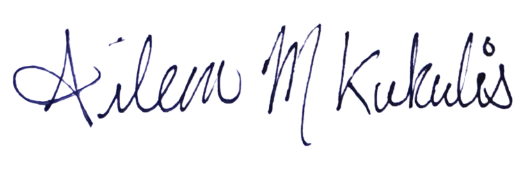 Aileen M Kukulis